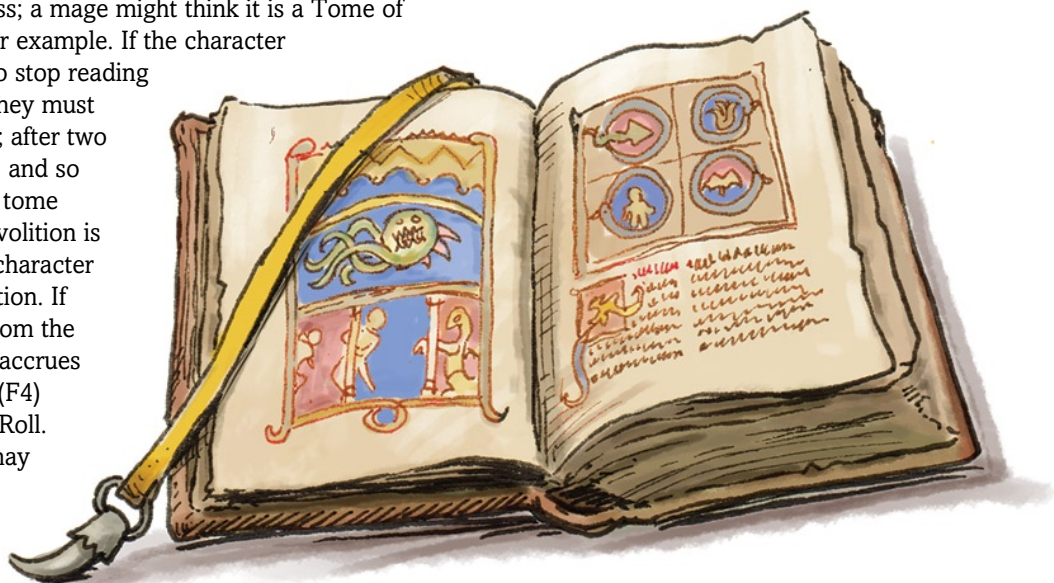 ss; a mage might think it is a Tome of
r example. If the character
o stop reading
hey must
; after two
and so
tome
volition is
character
tion. If
om the
accrues
(F4)
Roll.
nay